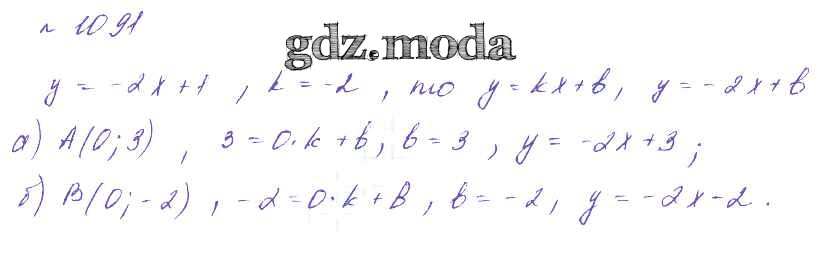 № 1091
gdz.moda
y = -2x+1, k = -2, то y = kx+b, y = -2x+b
а) A(0; 3), 3 = 0·k+b, b = 3, y = -2x+3;
б) B(0; -2), -2 = 0·k+b, b = -2, y = -2x-2.